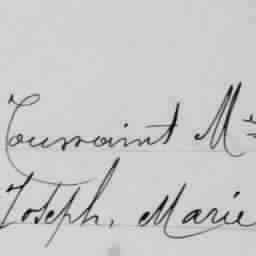 Toussaint Me
Joseph, Marie